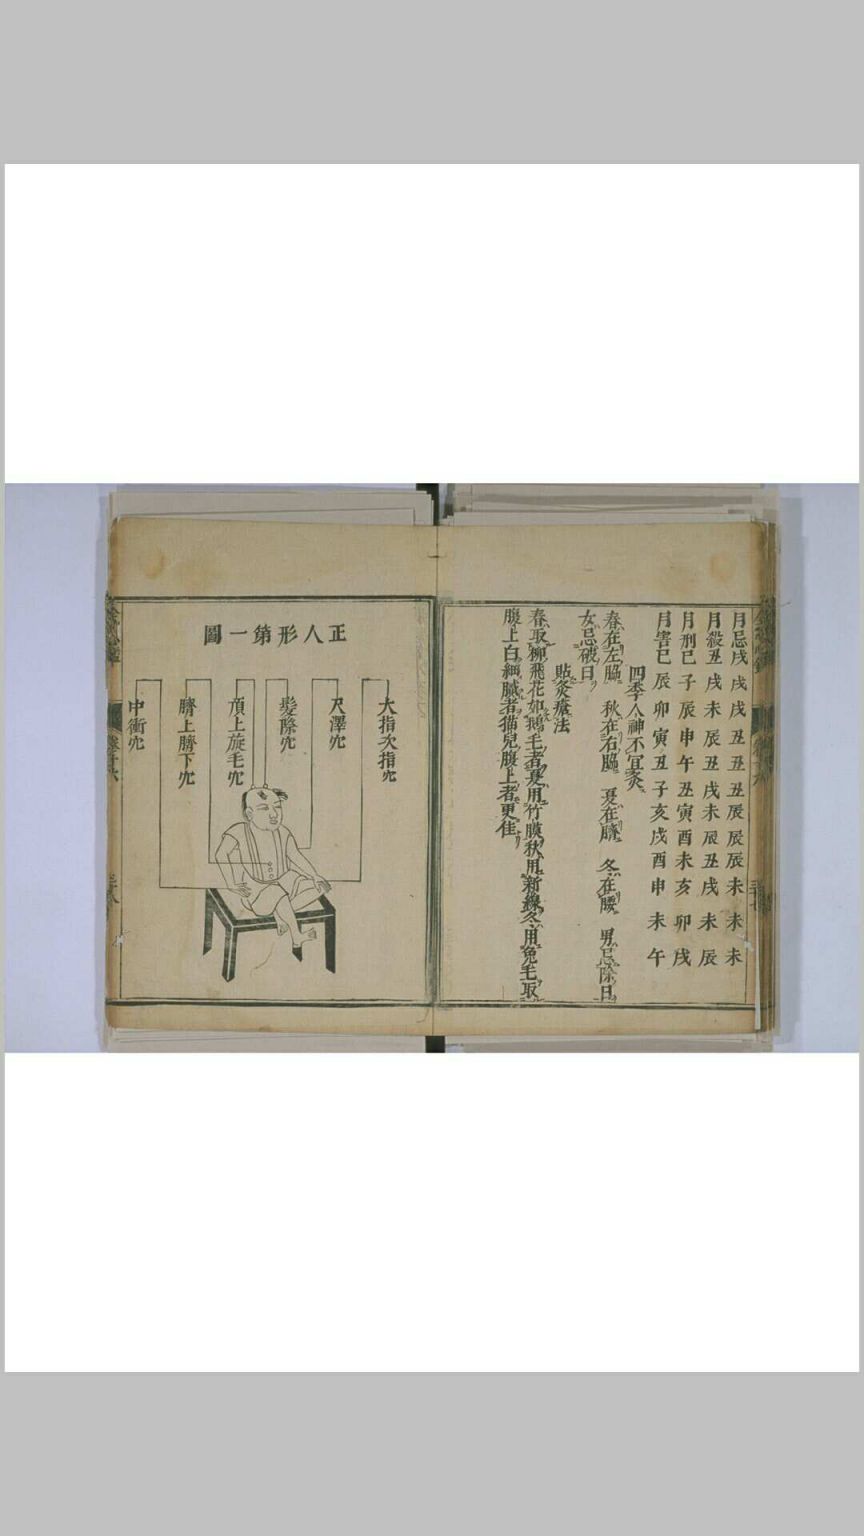 月忌戌戌戌丑丑丑辰辰辰未未未
月殺丑戌未辰丑戌未辰丑戌未辰
月刑巳子辰申午丑寅酉未亥卯戌
月害巳辰卯寅丑子亥戌酉申未午
四季人神不宜灸
春在左脇 秋在右脇 夏在臍 冬在腰 男忌除日
女忌破日
貼灸瘡法
春取柳飛花如鵝毛者夏用竹膜秋用新綿冬用兔毛取
腹上白細膩者猫兒腹上者更佳
正人形第一圖
大指次指穴
尺澤穴
髮際穴
頂上旋毛穴
臍上臍下穴
中衝穴